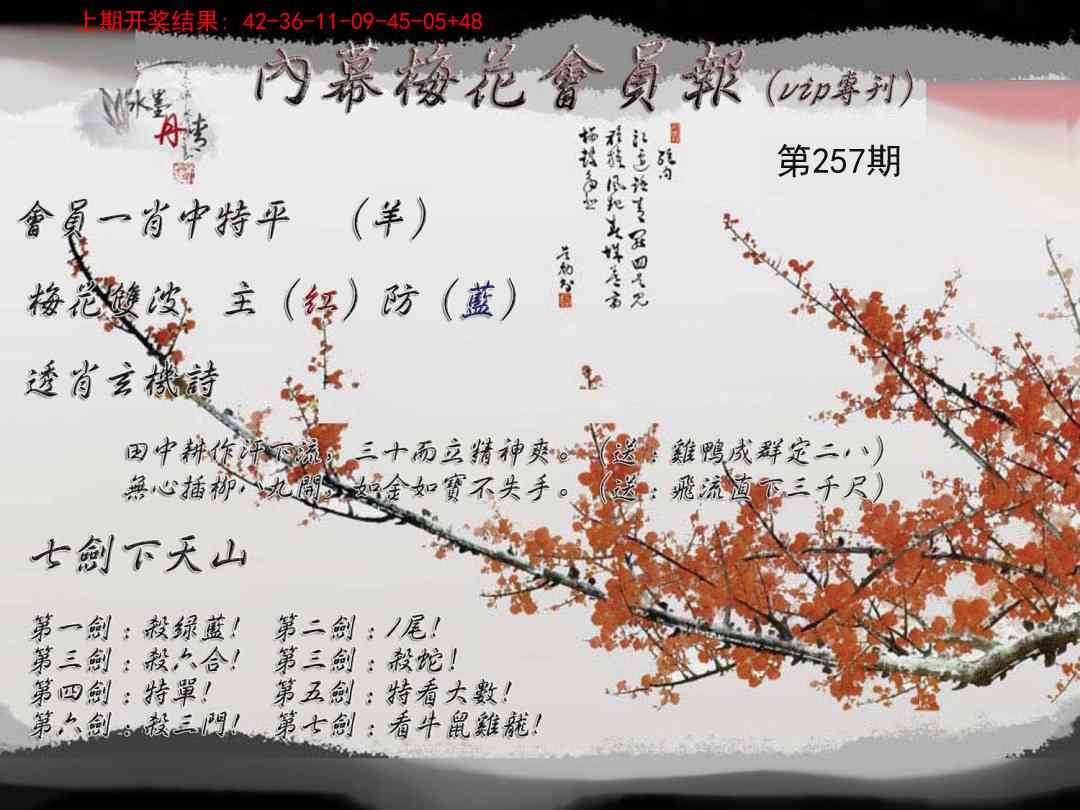 上期开奖结果：42-36-11-09-45-05+48
內幕梅花會員報（vip專刊）
水墨
丹青
第257期
會員一肖中特平　（羊）
梅花雙波　主（紅）防（藍）
透肖玄機詩
田中耕作汗下流，三十而立精神爽。（送：雞鴨成群定二八）
無心插柳八九開，如金如寶不失手。（送：飛流直下三千尺）
七劍下天山
第一劍：殺綠藍！　第二劍：1尾！
第三劍：殺六合！　第三劍：殺蛇！
第四劍：特單！　第五劍：特看大數！
第六劍：殺三門！　第七劍：看牛鼠雞龍！